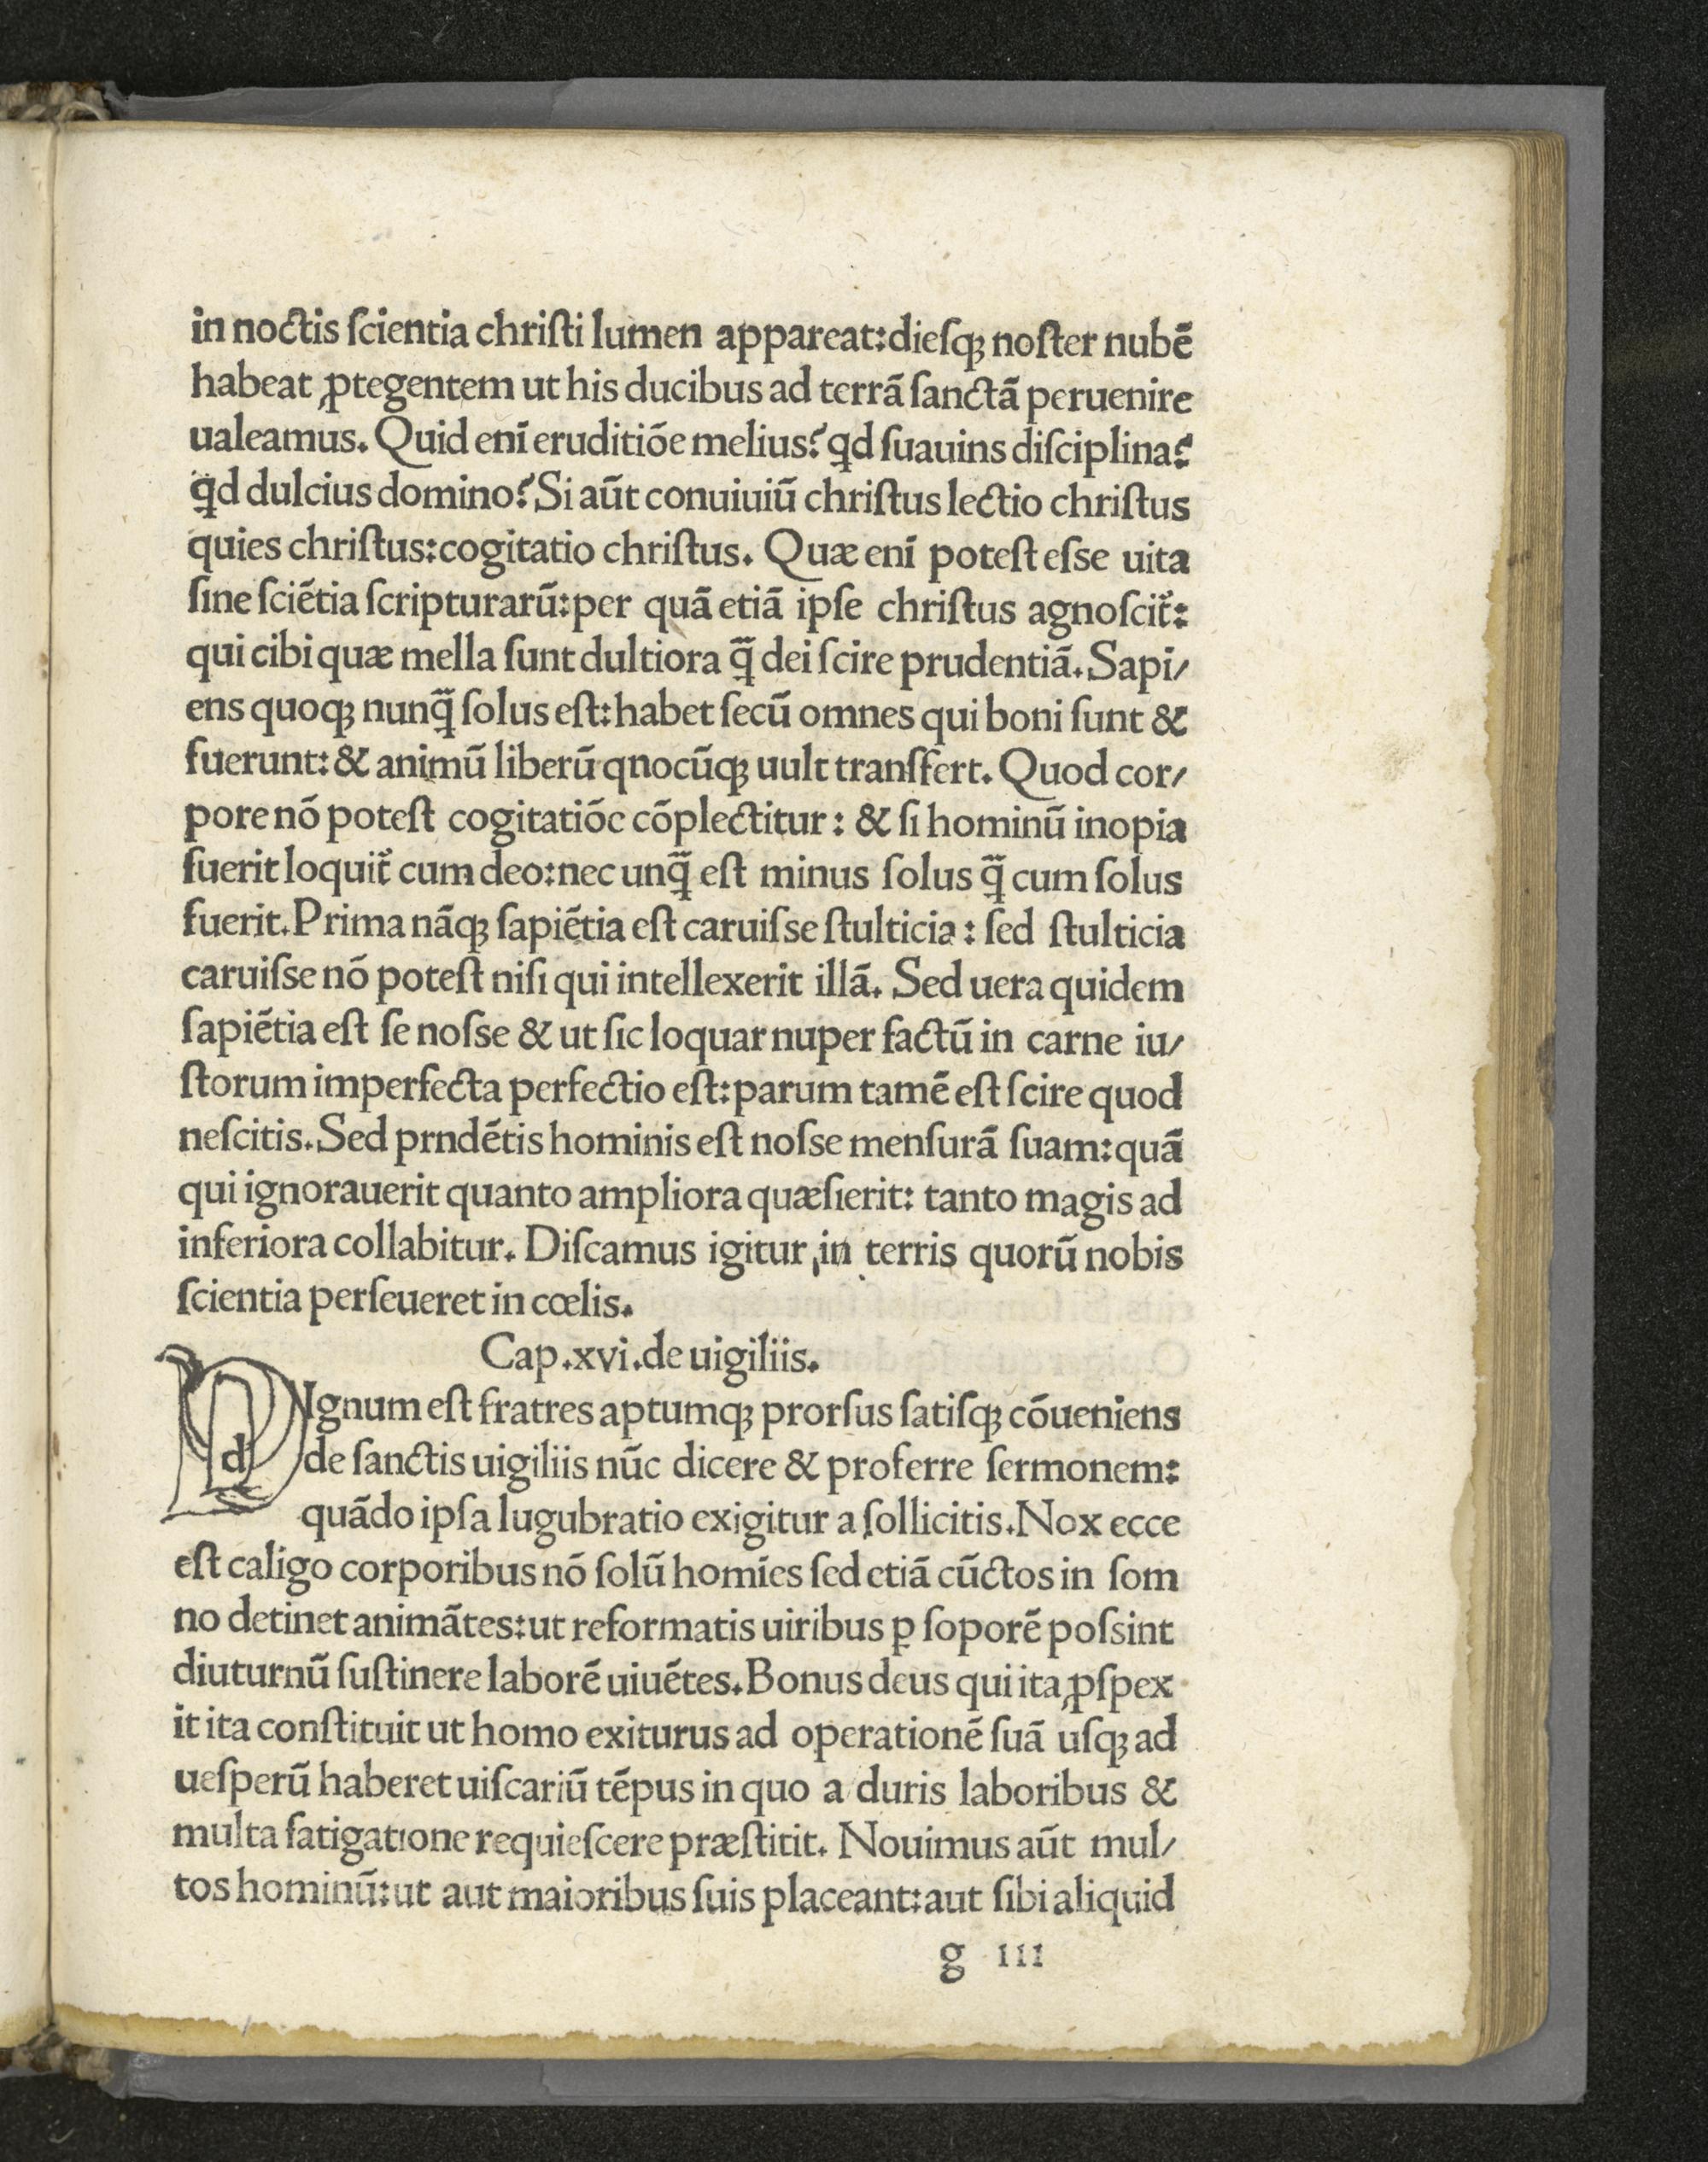 in noctis ſcientia chriſti lumen appareat:dieſqꝫ noſter nubē
habeat ꝓtegentem ut his ducibus ad terrã ſanctã peruenire
ualeamus. Quid enĩ eruditiõe melius? qd ſuauins diſciplina?
qd dulcius domino? Si aũt conuiuiũ chriſtus lectio chriſtus
quies chriſtus:cogitatio chriſtus. Quæ enĩ poteſt eſſe uita
ſine ſciẽtia ſcripturarũ:per quã etiã ipſe chriſtus agnoſcit̃:
qui cibi quæ mella ſunt dultiora q̃ dei ſcire prudentiã. Sapi/
ens quoqꝫ nunq̃ ſolus eſt:habet ſecũ omnes qui boni ſunt &
fuerunt: & animũ liberũ qnocũqꝫ uult tranſfert. Quod cor/
pore nõ poteſt cogitatiõc cõplectitur: & ſi hominũ inopia
fuerit loquit̃ cum deo:nec unq̃ eſt minus ſolus q̃ cum ſolus
fuerit. Prima nãqꝫ ſapiẽtia eſt caruiſſe ſtulticia: ſed ſtulticia
caruiſſe nõ poteſt niſi qui intellexerit illã. Sed uera quidem
ſapiẽtia eſt ſe noſſe & ut ſic loquar nuper factũ in carne iu/
ſtorum imperfecta perfectio eſt:parum tamẽ eſt ſcire quod
neſcitis. Sed prndẽtis hominis eſt noſſe menſurã ſuam:quã
qui ignorauerit quanto ampliora quæſierit: tanto magis ad
inferiora collabitur. Diſcamus igitur in terris quorũ nobis
ſcientia perſeueret in cœlis.
Cap.xvi.de uigiliis.
dIgnum eſt fratres aptumqꝫ prorſus ſatiſqꝫ cõueniens
de ſanctis uigiliis nũc dicere & proferre ſermonem:
quãdo ipſa lugubratio exigitur a ſollicitis. Nox ecce
eſt caligo corporibus nõ ſolũ homĩes ſed etiã cũctos in ſom
no detinet animãtes:ut reformatis uiribus ꝑ ſoporẽ poſsint
diuturnũ ſuſtinere laborẽ uiuẽtes. Bonus deus qui ita ꝓſpex
it ita conſtituit ut homo exiturus ad operationẽ ſuã uſqꝫ ad
ueſperũ haberet uiſcariũ tẽpus in quo a duris laboribus &
multa fatigatione requieſcere præſtitit. Nouimus aũt mul/
tos hominũ:ut aut maioribus ſuis placeant:aut ſibi aliquid
g iii